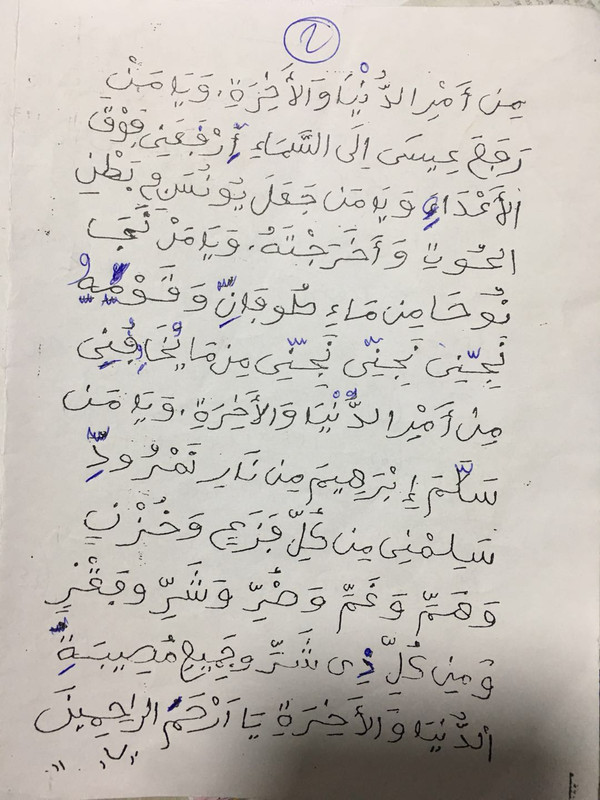 ٢
مِن أَمْرِ الدُّنْيَا وَالأَخِرَةِ، وَيَا مَنْ
رَفَعَ عِيسَى اِلَى السَّمَاءِ أَرْفَعْنِي فَوْقَ
الأَعْدَاءِ وَيَا مَن جَعَلَ يُونُسَ فِي بَطْنِ
الحُوتِ وَأَخْرَجْتَهُ، وَيَا مَنْ نَّجَا
نُوحَا مِن مَاءِ طُلوفَانِّ وَقَوْمِهِ
نَجِّنِي نَجِنِّي نَجِّنِي مِن مَا يُخَافُنِي
مِنْ أَمْرِ الدُّنْيَا وَالأَخِرَةِ، وَيَا مَن
سَلَّمَ إِبْرَهِيمَ مِن نَارِ نَمْرُودِّ
سَلِمْنِي مِن كُلِّ فَزَعٍ وَحُزْنٍ
وَهَمٍّ وَغَمٍّ وَضُرٍّ وَشَرٍّ وفَقْرٍ
وَمِن كُلِّ ذِى شَرٍّ وجَمِيعِ مُصِيبَةِ
الدُّنْيَا وَالأَخِرَةِ يَا اَرْحَمَ الرَاحِمِينَ